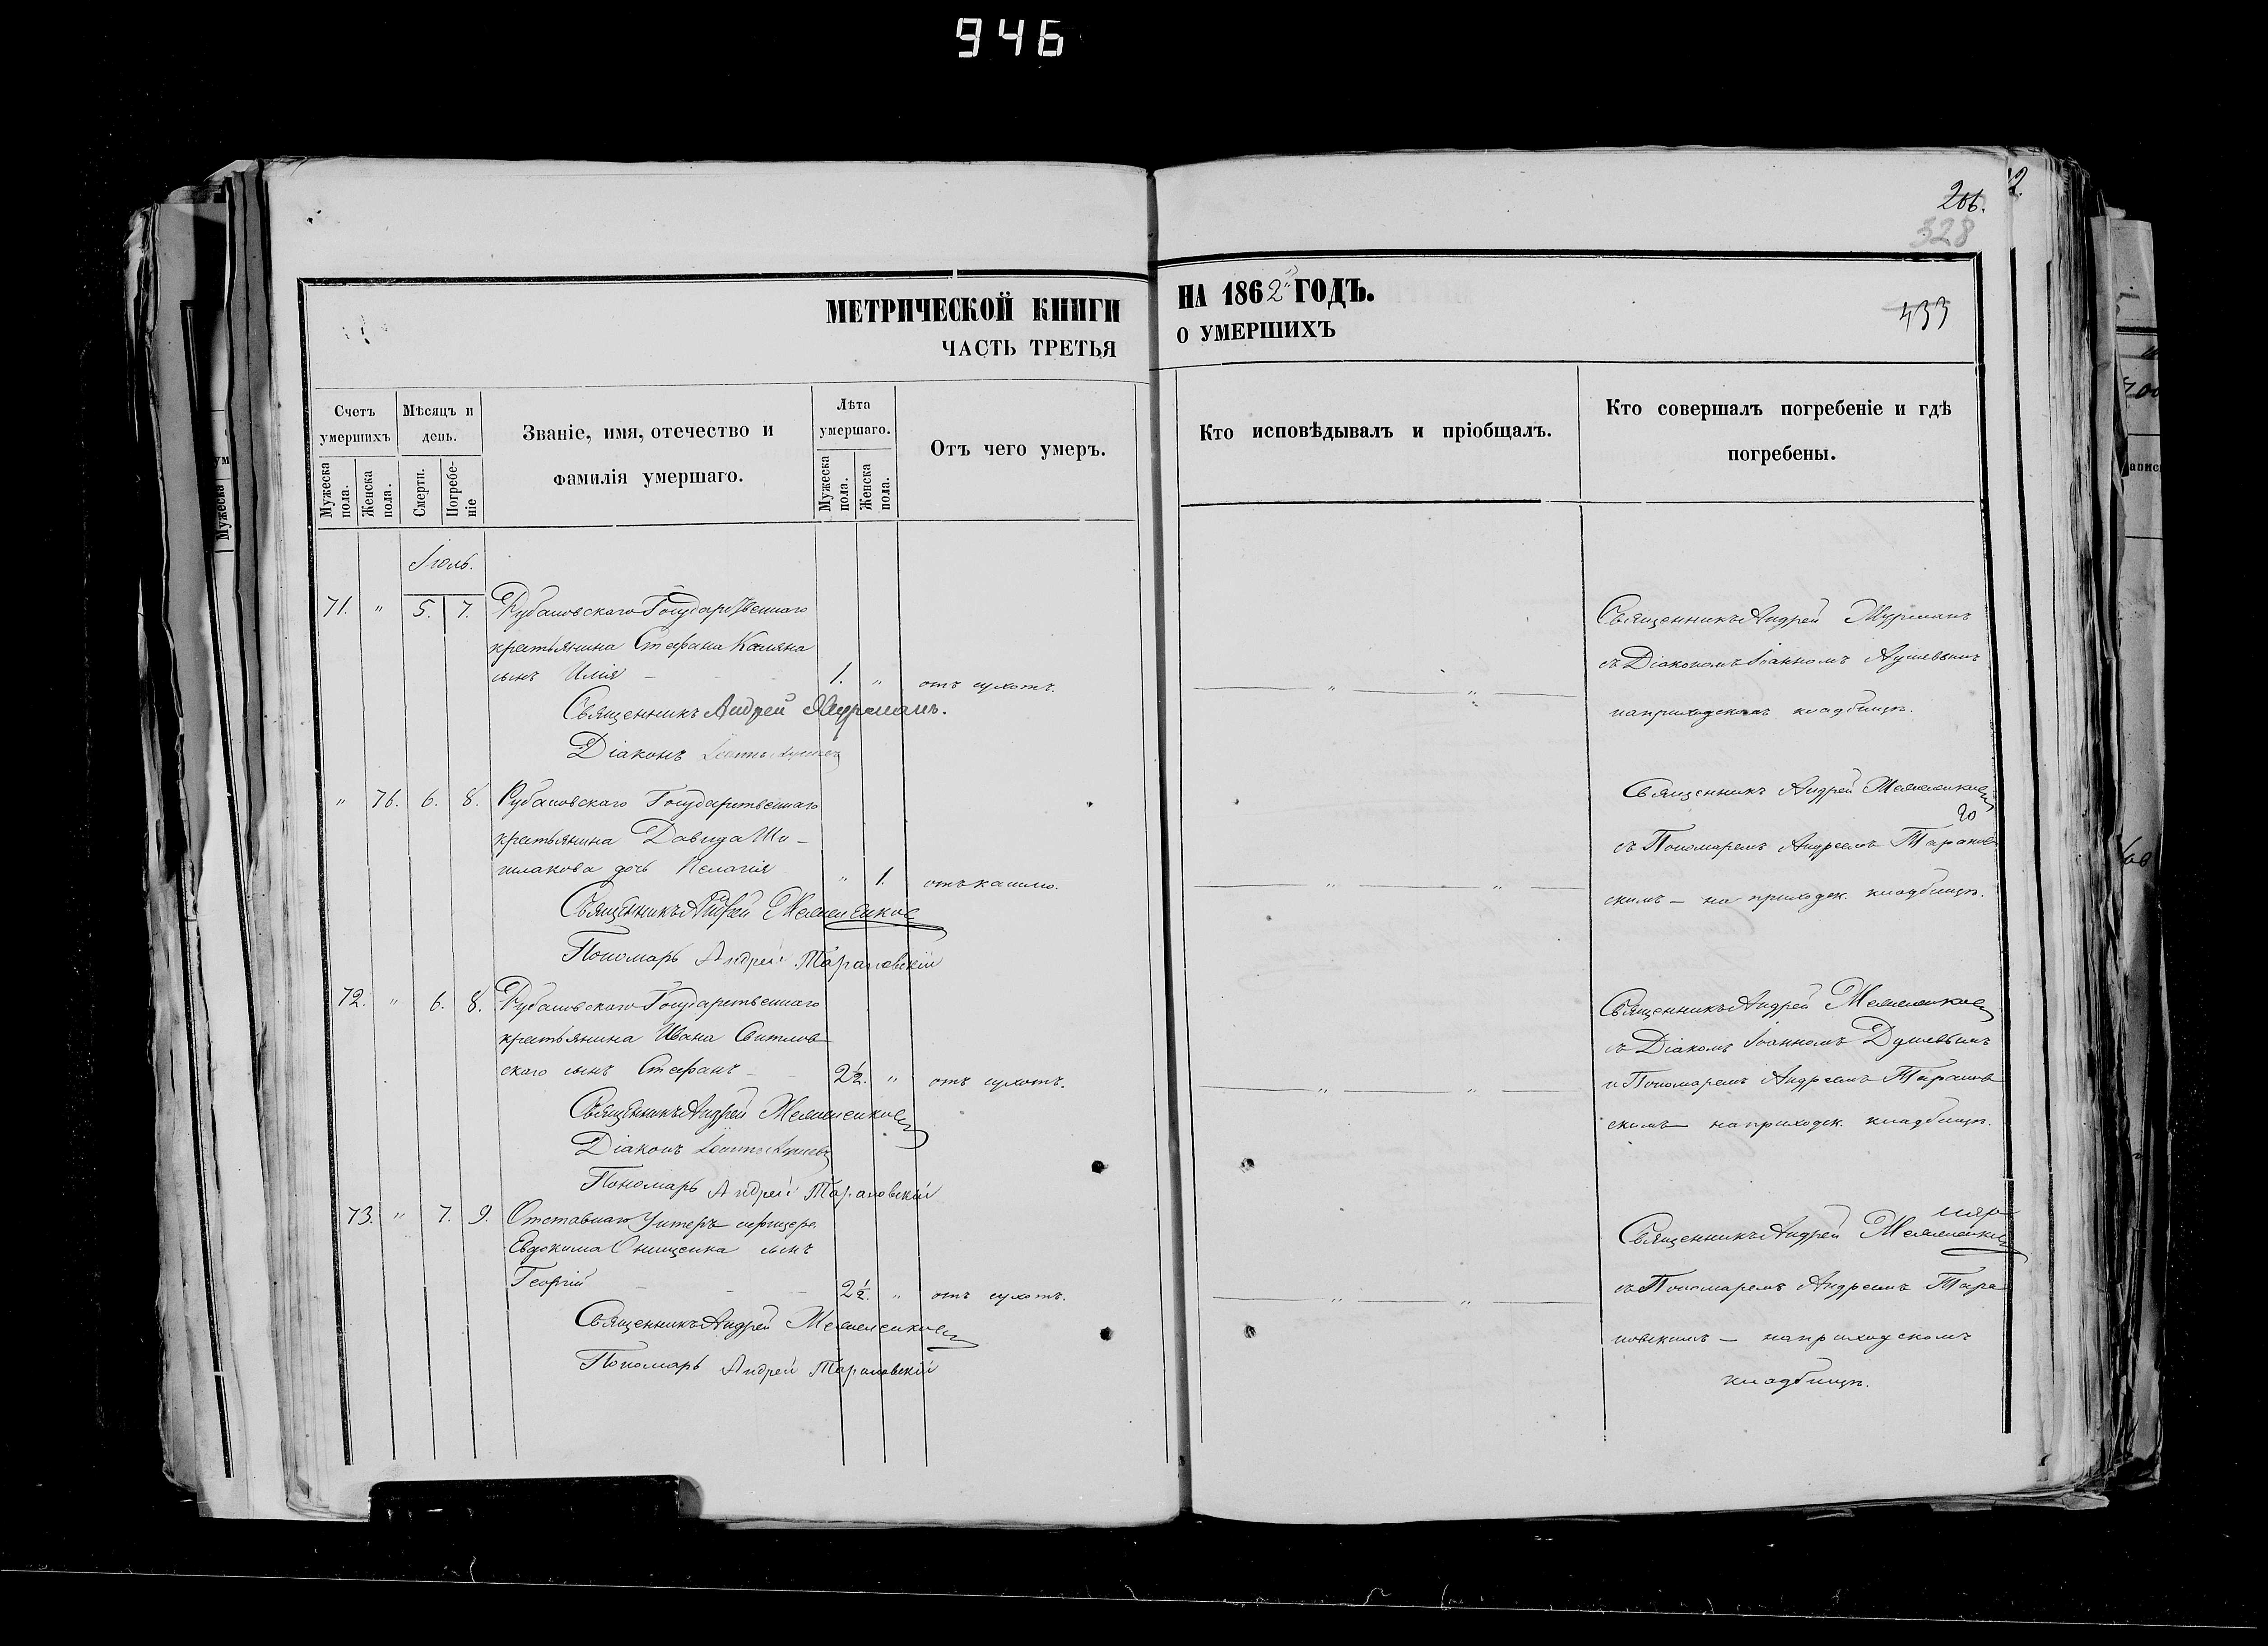 946
206.
328
МЕТРИЧЕСКОЙ КНИГИ НА 1862 ГОДЪ.
433
ЧАСТЬ ТРЕТЬЯ О УМЕРШИХЪ
Счетъ умершихъ
Мужеска пола.
Женска пола.
Мѣсяцъ и день.
Смерти.
Погребеніе
Званіе, имя, отечество и
фамилія умершаго.
Лѣта умершаго.
Мужеска пола.
Женска пола.
Отъ чего умеръ.
Кто исповѣдывалъ и пріобщалъ.
Кто совершалъ погребеніе и гдѣ
погребены.
Іюль.
71. " 5. 7. Рубановскаго Государственнаго
крестьянина Стефана
сынъ Илія 1. " отъ сухотъ.
Священникъ Андрей Мурманъ.
Діаконъ
Священникъ Андрей Мурманъ
съ Діакономъ Іоанномъ
на приходскомъ кладбищѣ.
" 76. 6. 8. Рубановскаго Государственнаго
крестьянина Давида Ши-
шлакова дочь Пелагія " 1. отъ кашлю.
Священникъ Андрей
Пономарь Андрей Тарановскій
Священникъ Андрей
съ Пономаремъ Андреемъ Таранов
скимъ — на приходск. кладбищѣ.
72. " 6. 8. Рубановскаго Государственнаго
крестьянина Ивана Свитлов
скаго сынъ Стефанъ 2½. " отъ сухотъ.
Священникъ Андрей
Діаконъ
Пономарь Андрей Тарановскій
Священникъ Андрей
съ Іоанномъ Душевымъ
и Пономаремъ Андреемъ Таранов
скимъ на приходск. кладбищѣ.
73. " 7. 9. Отставнаго Унтеръ офицера
Евдокима Онищенка сынъ
Георгій 2½. " отъ сухотъ.
Священникъ Андрей
Пономарь Андрей Тарановскій
Священникъ Андрей
съ Пономаремъ Андреемъ Тара
новскимъ — на приходскомъ
кладбищѣ.